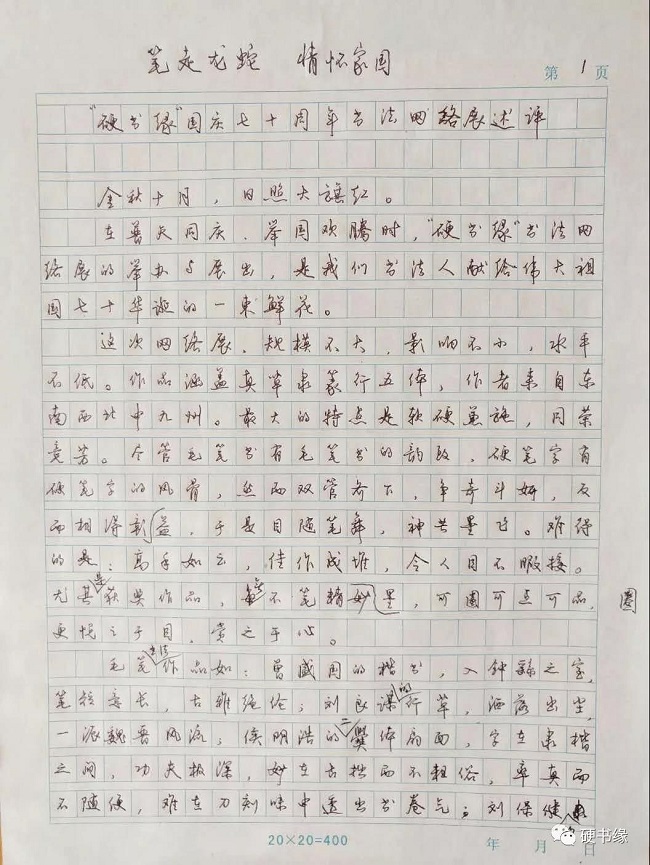 笔走龙蛇 情怀家国
第 1 页
"硬书缘"国庆七十周年书法网络展述评
金秋十月，日照大旗红。
在普天同庆、举国欢腾时，"硬书缘"书法网
络展的举办与展出，是我们书法人献给伟大祖
国七十华诞的一束鲜花。
这次网络展，规模不大，影响不小，水平
不低。作品涵盖真草隶篆行五体，作者来自东
南西北中九州。最大的特点是软硬兼施，同荣
竞芳。尽管毛笔书有毛笔书的韵致，硬笔字有
硬笔字的风骨，然而双管齐下，争奇斗妍，反
而相得彰益，于是目随笔舞，神共墨飞。难得
的是：高手如云，佳作成堆，令人目不暇接。
尤其是获奖作品，无不笔精妙墨，可圈可点可品，
圈
更悦之于目，赏之于心。
毛笔书法作品如：曾盛国的楷书，入钟繇之室，
笔短意长，古雅绝伦；刘良谋的行草，洒落出尘，
一派魏晋风流；侯明浩的二爨体扇面，字在隶楷
之间，功夫极深，妙在古拙而不粗俗，率真而
不随便，难在刀刻味中透出书卷气；刘保继
20×20=400
年 月 日
硬书缘